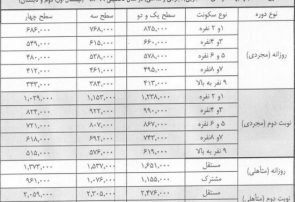 نوع دوره نوع سکونت سطح یک و دو سطح سه سطح چهار
روزانه (مجردی)
۱و ۲ نفره ۸۲۵,۰۰۰ ۷۶۸,۰۰۰ ۶۸۶,۰۰۰
۳و ۴نفره ۶۶۰,۰۰۰ ۶۱۵,۰۰۰ ۵۴۹,۰۰۰
۵ و ۶ نفره ۵۷۸,۰۰۰ ۵۳۸,۰۰۰ ۴۸۰,۰۰۰
۷و ۸نفره ۴۹۵,۰۰۰ ۴۶۱,۰۰۰ ۴۱۲,۰۰۰
۹ نفر به بالا ۴۱۳,۰۰۰ ۳۸۴,۰۰۰ ۳۴۳,۰۰۰
نوبت دوم (مجردی)
۱و ۲ نفره ۱,۲۳۸,۰۰۰ ۱,۱۵۳,۰۰۰ ۱,۰۲۹,۰۰۰
۳و ۴نفره ۹۹۰,۰۰۰ ۹۲۲,۰۰۰ ۸۲۴,۰۰۰
۵ و ۶ نفره ۸۶۷,۰۰۰ ۸۰۷,۰۰۰ ۷۲۱,۰۰۰
۷و ۸نفره ۷۴۳,۰۰۰ ۶۹۲,۰۰۰ ۶۱۸,۰۰۰
۹ نفر به بالا ۶۱۹,۰۰۰ ۵۷۶,۰۰۰ ۵۱۵,۰۰۰
روزانه (متأهلی)
مستقل ۱,۶۵۱,۰۰۰ ۱,۵۳۷,۰۰۰ ۱,۳۷۳,۰۰۰
مشترک ۱,۱۵۵,۰۰۰ ۱,۰۷۶,۰۰۰ ۹۶۱,۰۰۰
نوبت دوم (متأهلی)
مستقل ۲,۴۷۶,۰۰۰ ۲,۳۰۵,۰۰۰ ۲,۰۵۹,۰۰۰